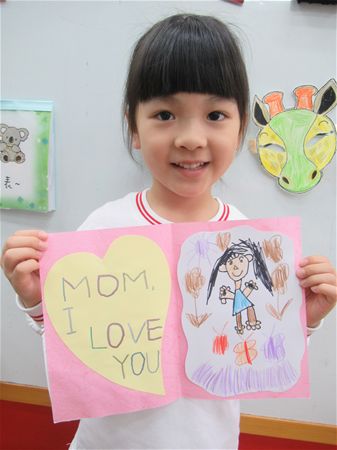 MOM,
I
LOVE
YOU
表~